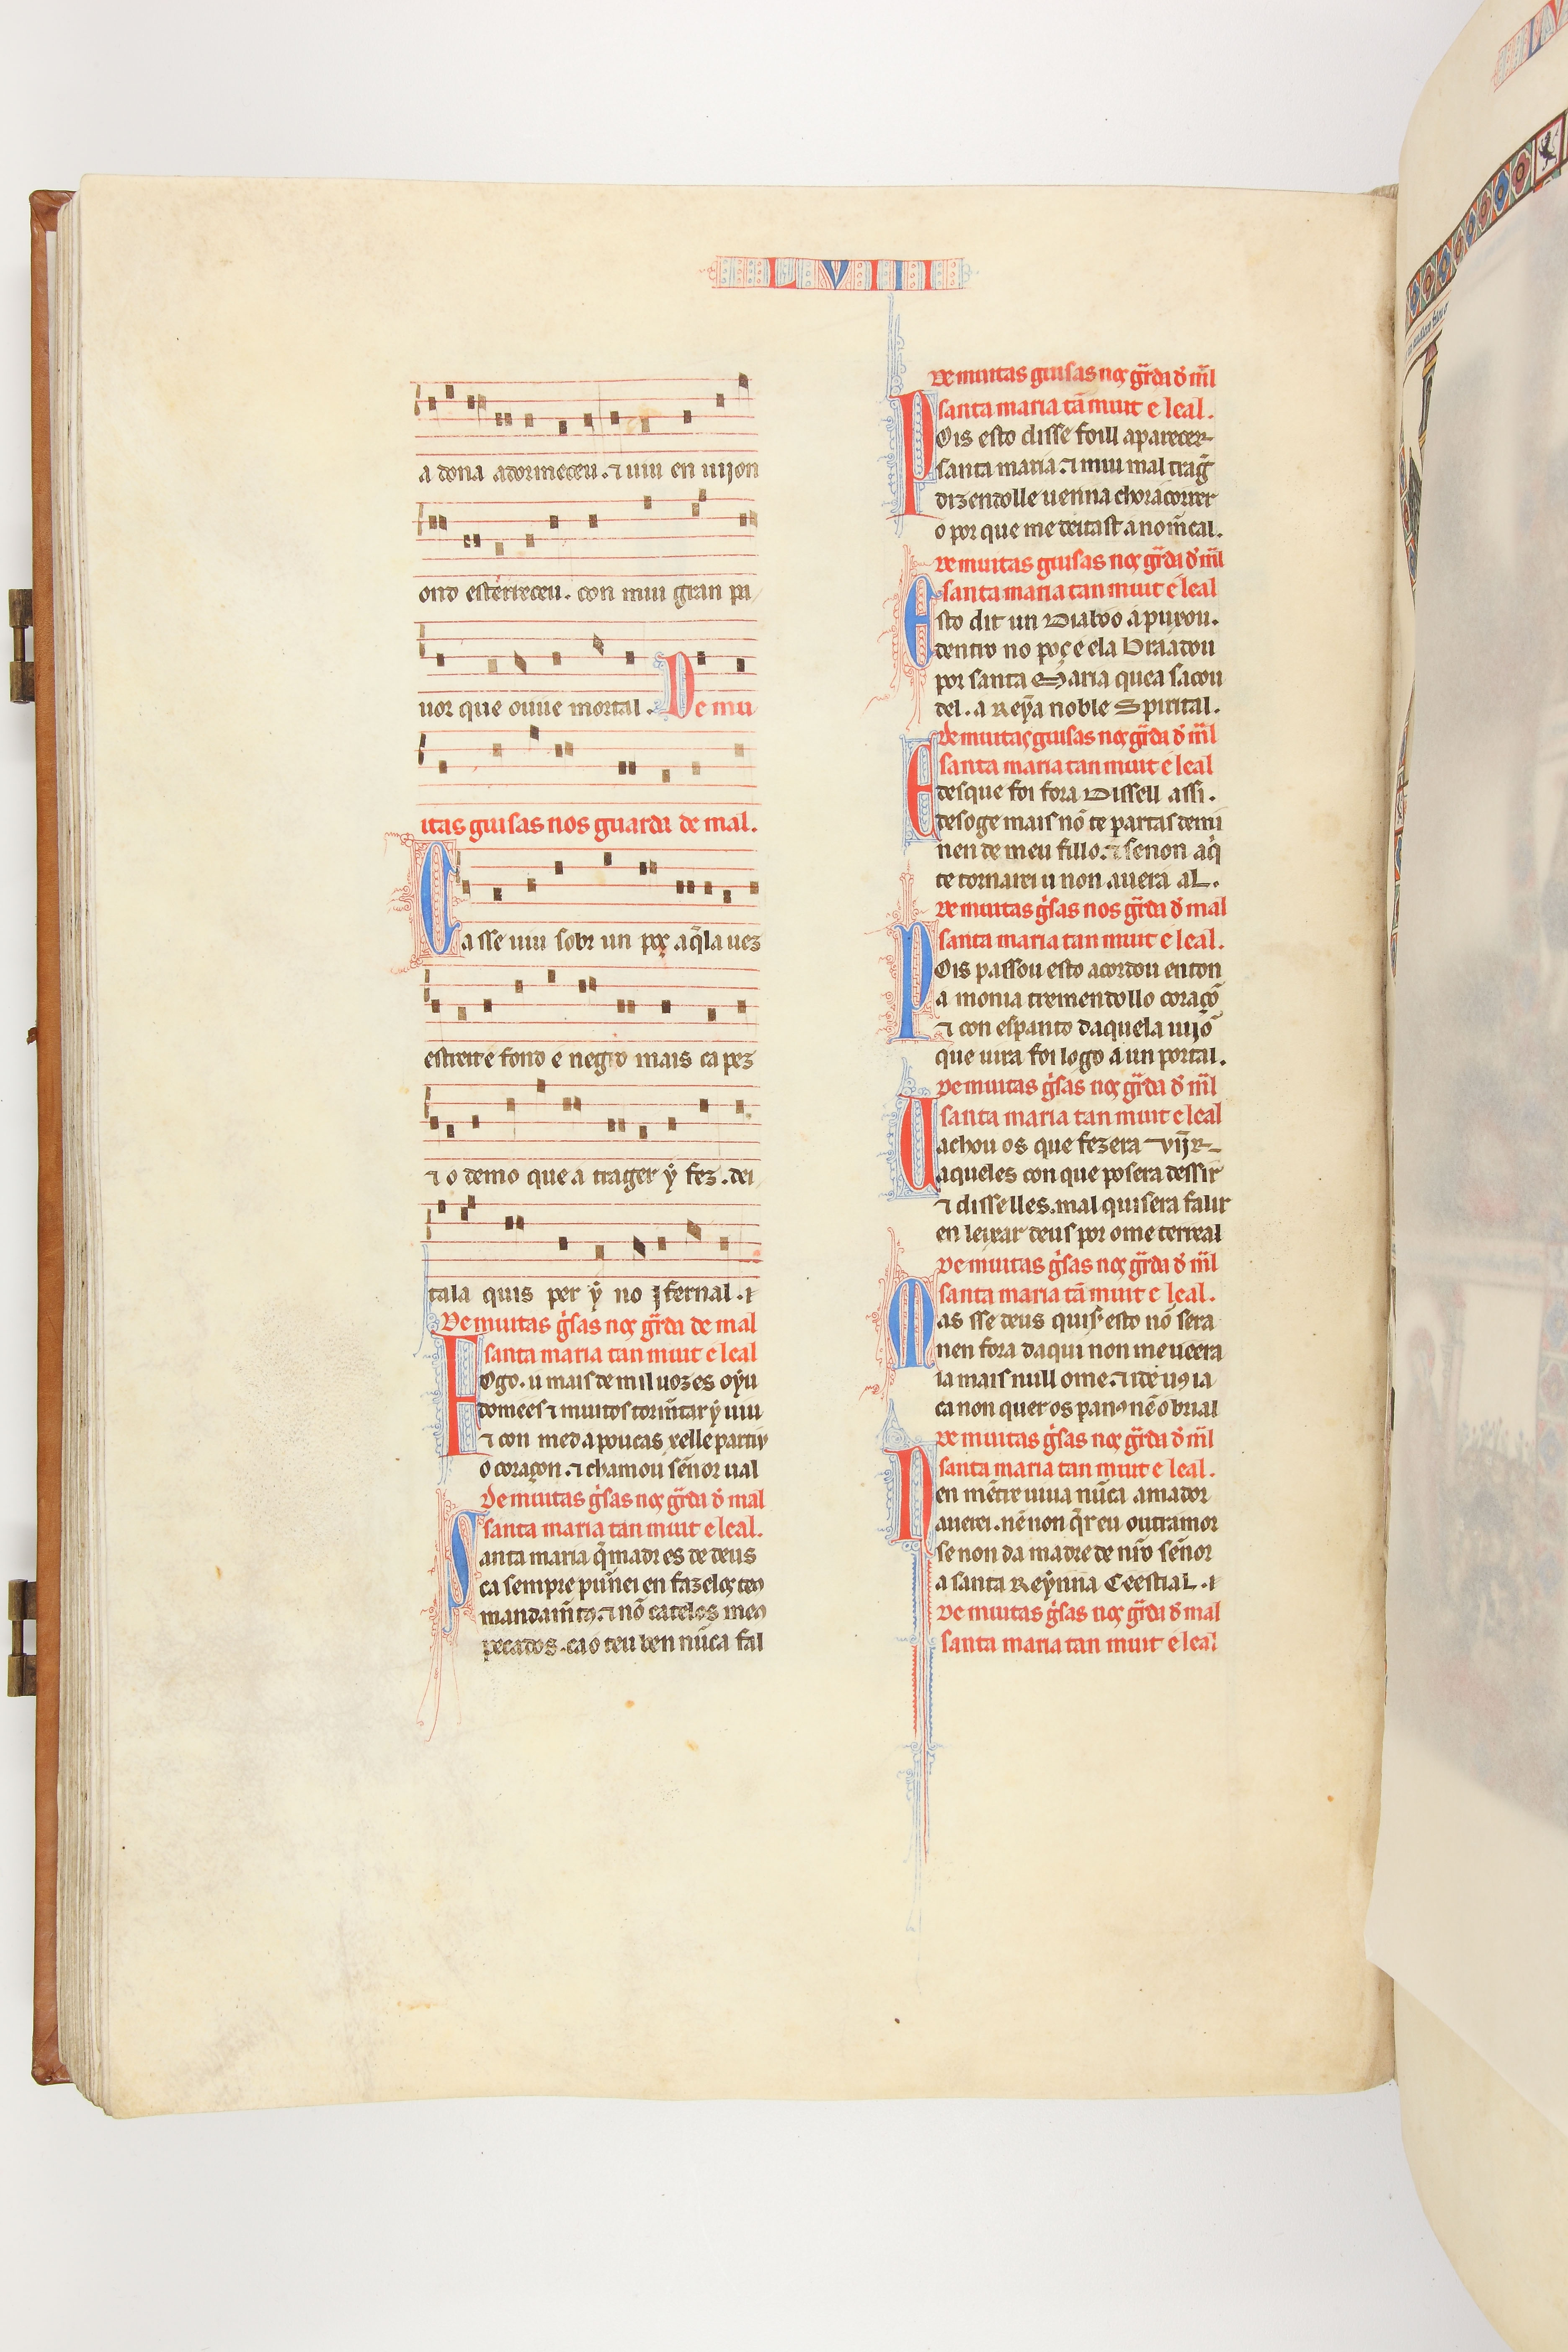 LVIII
a dona adormeceu. ⁊ uiu en uijon
ond esterreceu. con mui gran pa
uor que ouue mortal. De mu
itas guisas nos guarda de mal.
Ca sse uiu sobr un poç aq̃la uez
estreite fond e negro mais ca pez
⁊ o demo que a trager ẏ fez. dei
tala quis per ẏ no jfernal. ⁊
De muitas g̓sas noς gr̃da de mal
santa maria tan muit e leal
Fogo. u mais de mil uozes oẏu
domees ⁊ muitos torm̃tar ẏ uiu
⁊ con med a poucas xelle partiu
o coraçon. ⁊ chamou sẽnor ual
De muitas g̓sas noς gr̃da d̓ mal
santa maria tan muit e leal.
Santa maria q̃ madr es de deus
ca sempre pun̄ei en fazeloς teꝯ
mandam̃tꝯ. ⁊ nõ cateles meꝯ
pecados. ca o teu ben nũca fal
De muitas guisas noς gr̃da d̓ m̃l
santa maria tã muit e leal.
Pois esto disse foill aparecer
santa maria. ⁊ mui mal trag̃
dizendolle uenna chora correr
o por que me deitast a nom̃cal.
De muitas guisas noς gr̃da d̓ m̃l
santa maria tan muit e leal
Esto dit un Diaboo a puxou.
dentro no poς e ela braadou
por santa Maria quea sacou
del. a Reẏa noble Spirital.
De muitaς guisas noς gr̃da d̓ m̃l
santa maria tan muit e leal
E desque foi fora Dissell assi.
desoge mais nõ te partas demi
nen de meu fillo. ⁊ se non aq̓
te tornarei u non auera aL.
De muitas g̓sas nos gr̃da d̓ mal
santa maria tan muit e leal.
Pois passou esto acordou enton
a monia tremendollo coraçõ
⁊ con espanto daquela uijõ
que uira foi logo a un portal.
De muitas g̓sas noς gr̃da d̓ m̃l
santa maria tan muit e leal
U achou os que fezera vĩjr
aqueles con que posera dessir
⁊ disselles. mal quisera falir
en leixar deus por ome terreal
De muitas g̓sas noς gr̃da d̓ m̃l
santa maria tã muit e leal.
Mas sse deus quis̓ esto nõ sera
nen fora daqui non me ueera
ia mais null ome. ⁊ ide uꝯ ia
ca non quer os panꝯ nẽ o brial
De muitas g̓sas noς gr̃da d̓ m̃l
santa maria tan muit e leal.
Nen mẽtre uiua nũca amador
auerei. nẽ non q̃r eu outramor
se non da madre de nr̃o sẽnor
a santa Reẏnna CeestiaL. ⁊
De muitas g̓sas noς gr̃da d̓ mal
santa maria tan muit e leal